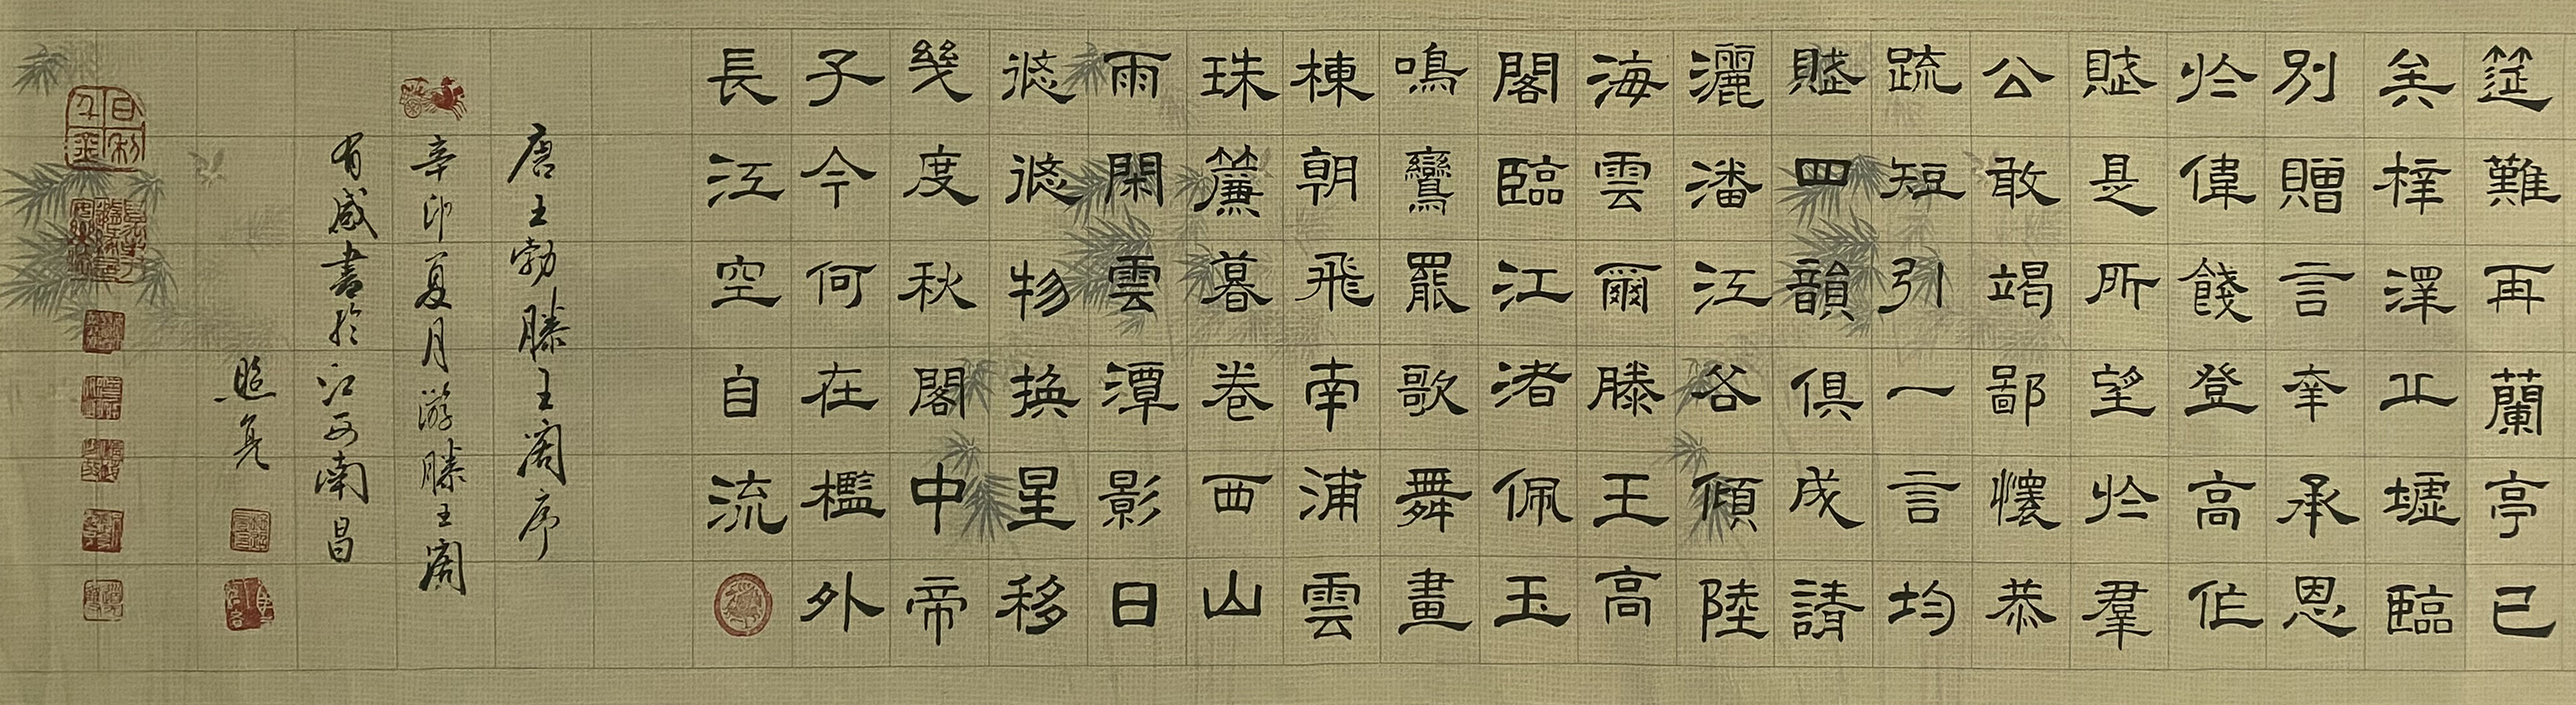 筵難再蘭亭已
矣梓澤丘墟臨
別贈言幸承恩
於偉餞登高作
賦是所望於羣
公敢竭鄙懷恭
疏短引一言均
賦四韻俱成請
灑潘江各傾陸
海雲爾滕王高
閣臨江渚佩玉
鳴鸞罷歌舞畫
棟朝飛南浦雲
珠簾暮卷西山
雨閑雲潭影日
悠悠物換星移
幾度秋閣中帝
子今何在檻外
長江空自流
唐王勃滕王阁序
辛卯夏月游滕王阁
有感書於江西南昌
照亮
日利千金